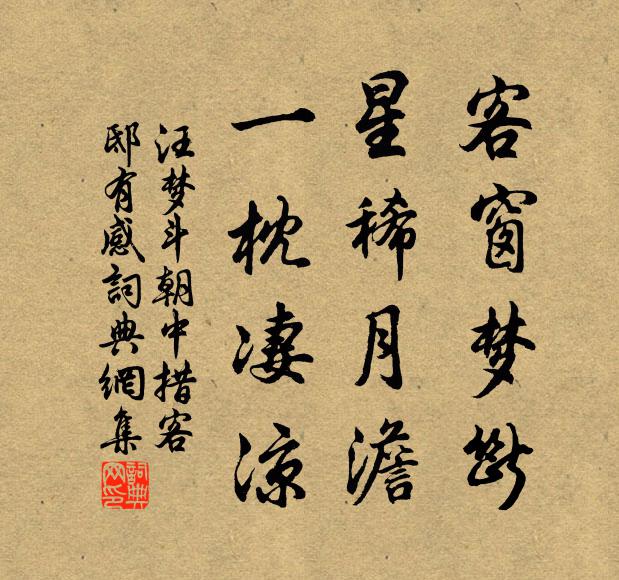 客窗梦断
星稀月澹
一枕凄凉
汪梦斗朝中措客
邸有感詞典網集
詞典网印